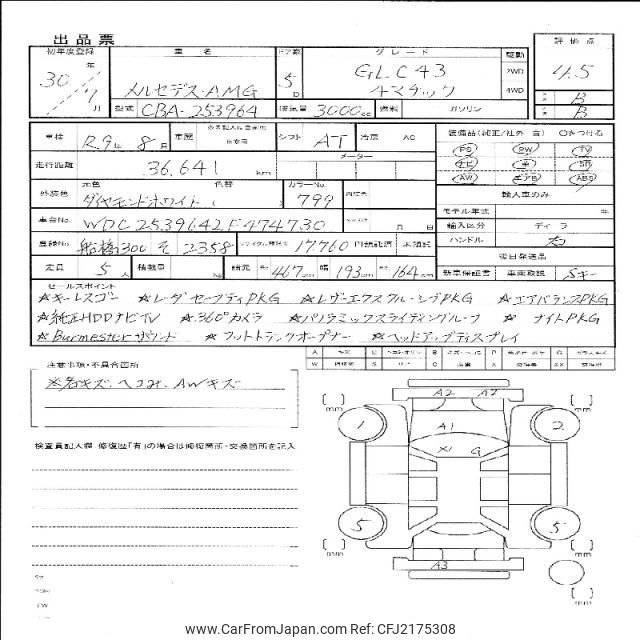 出品票
初年度登録 車名 ドア数 グレード 駆動 評価点
30年 メルセデス・AMG 5D GLC43 2WD 4.5
1月 4マチック 4WD
型式 CBA-253964 排気量 3000cc 燃料 ガソリン B
B
車検 R.9年 8月 車歴 自家用 シフト AT 冷房 AC 装備品(純正/社外 含)〇をつける
PS PW TV
走行距離 36,641 km メーター ナビ 革 SR
AW エアB ABS
外装色 元色 ダイヤモンドホワイト 色替 カラーNo. 799 内装色 輸入車のみ
モデル年式 年
車台No. WDC2539642F474730 月 日 輸入区分 ディーラ
登録No 船橋 300 そ 2358 リサイクル預託金 17760 円預託済 未預託 ハンドル 右
後日発送品
定員 5人 積載量 諸元 長さ 467cm 幅 193cm 高さ 164cm 新車保証書 車両取説 Sキー
セールスポイント
☆キーレスゴー ☆レーダーセーフティPKG ☆レザーエクスクルーシブPKG ☆エアバランスPKG
☆純正HDDナビTV ☆360°カメラ ☆パノラミックスライディングルーフ ☆ナイトPKG
☆Burmesterサウンド ☆フットトランクオープナー ☆ヘッドアップディスプレイ
注意事項・不具合箇所
※各キズ、ヘコみ、AWキズ
検査員記入欄 修復歴「有」の場合は修復箇所・交換箇所を記入
[ ] mm A2 A2 [ ] mm
1 A1 2
X1 G
5 5
[ ] mm A3 [ ] mm
mm
www.CarFromJapan.com Ref: CFJ2175308